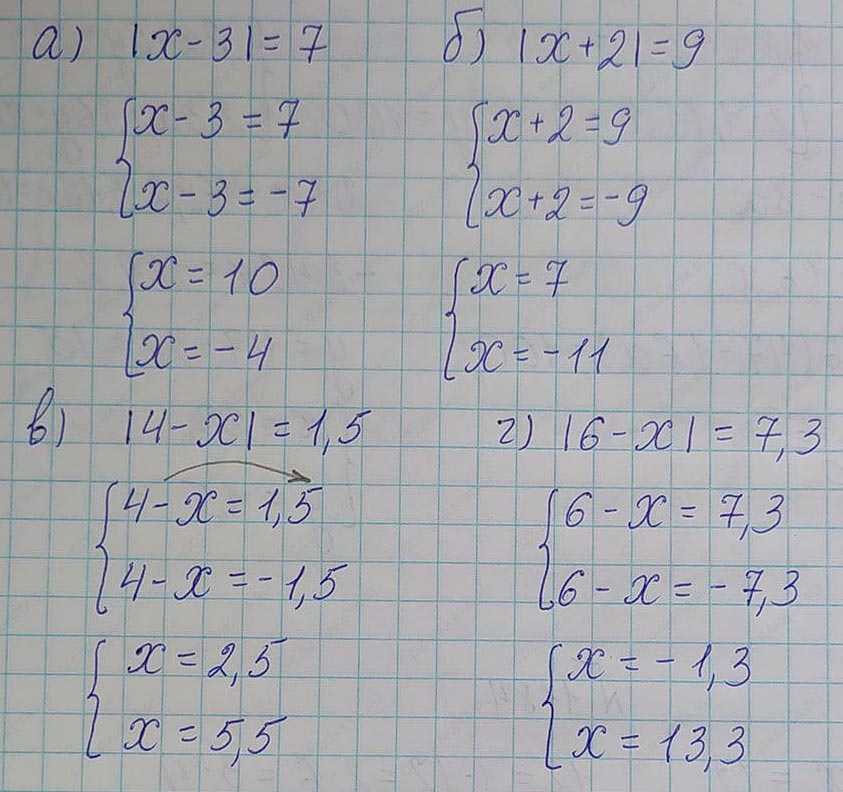 а) |x - 3| = 7
x - 3 = 7
x - 3 = -7
x = 10
x = -4
б) |x + 2| = 9
x + 2 = 9
x + 2 = -9
x = 7
x = -11
в) |4 - x| = 1,5
4 - x = 1,5
4 - x = -1,5
x = 2,5
x = 5,5
г) |6 - x| = 7,3
6 - x = 7,3
6 - x = -7,3
x = -1,3
x = 13,3